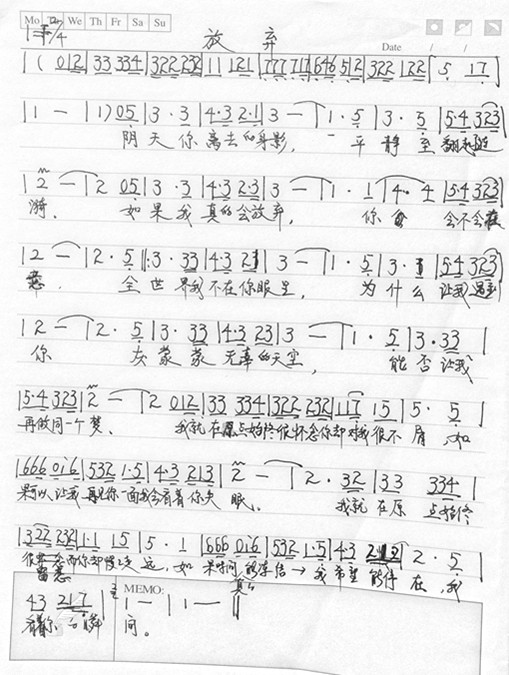 Mo Tu We Th Fr Sa Su
放弃
Date / /
1=F/4
|( 012 | 33 334 | 322 232 | 11 121 | 777 717 | 646 512 | 322 122 | 5 17 |
| 1 - | 1) 05 | 3·3 | 4·3 2·1 | 3 - | 1·5 | 3·5 | 5·4 323 |
阴天你离去的身影， 一平静至翻起涟
| 2 - | 2 05 | 3·3 | 4·3 2·3 | 3 - | 1·1 | 4·4 | 5·4 323 |
漪． 如果我真的会放弃， 你 会不会在
| 2 - | 2·5 |: 3·33 | 4·3 2 | 3 - | 1·5 | 3· | 5·4 323 |
意． 全世界我不在你眼里， 为什么让我遇到
| 2 - | 2·5 | 3·33 | 4·3 23 | 3 - | 1·5 | 3·33 |
你 灰蒙蒙无辜的天空， 能否让我
| 5·4 323 | 2 - | 2 012 | 33 334 | 322 232 | 117 15 | 5·5 |
再做同一个梦、 我就在原点始终很怀念你却对我很不屑，如
| 666 016 | 532 1·5 | 43 213 | 2 - | 2·32 | 33 334 |
果可以让我再见你一面我会看着你失眠． 我就在原点始终
| 322 232 | 1·1 15 | 5·1 | 666 016 | 532 1·5 | 43 212 | 2·5 |
留恋 而你却慢慢走远，如果时间 真的 冻结→我希望能停在，我
43 217 | 1 - | 1 - ||
MEMO:
看着你的瞬间。